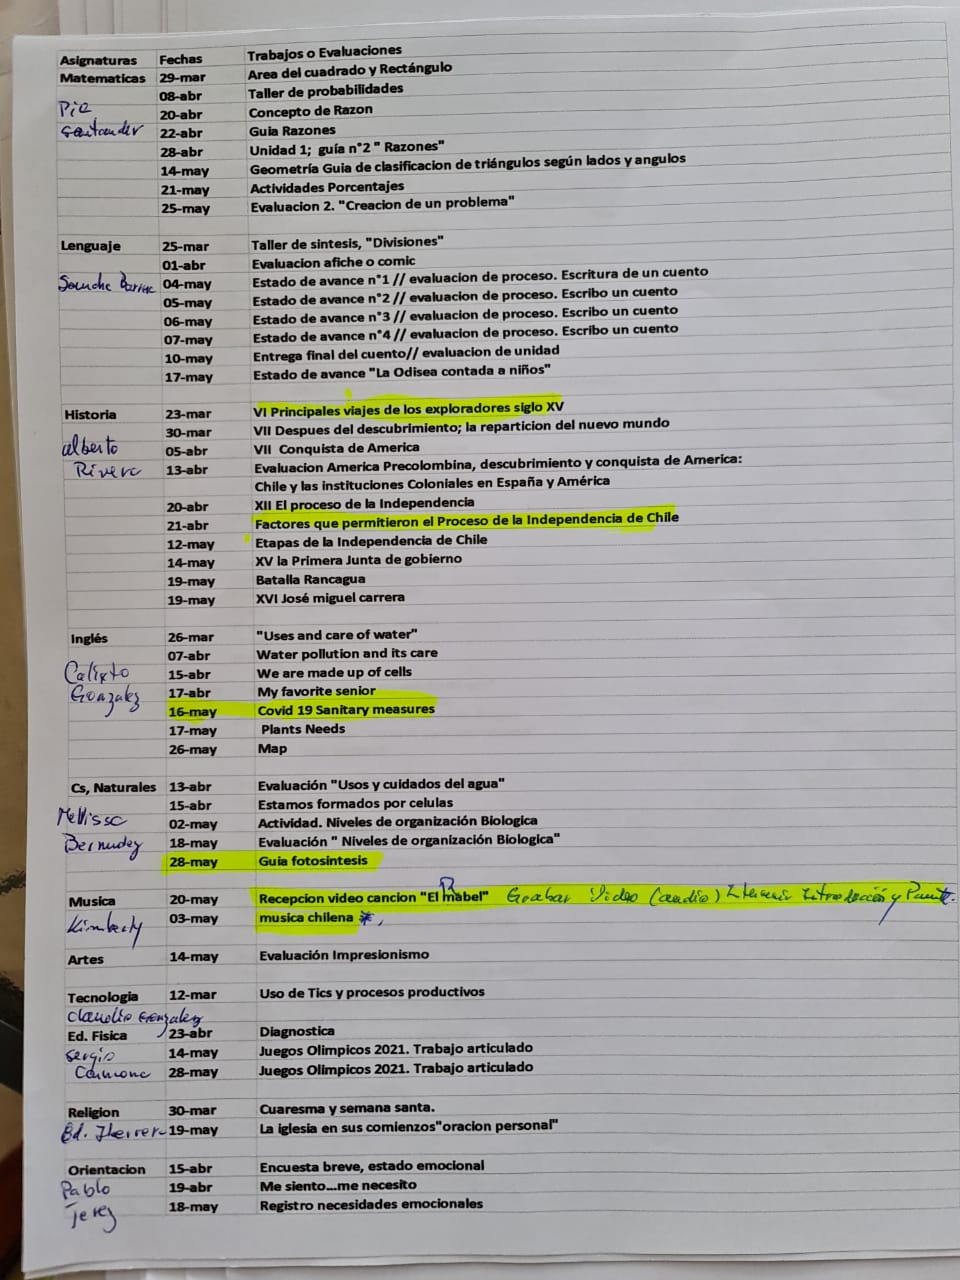 Asignaturas Fechas Trabajos o Evaluaciones
Matematicas 29-mar Area del cuadrado y Rectángulo
08-abr Taller de probabilidades
Pía 20-abr Concepto de Razon
Santander 22-abr Guia Razones
28-abr Unidad 1; guía n°2 " Razones"
14-may Geometría Guia de clasificacion de triángulos según lados y angulos
21-may Actividades Porcentajes
25-may Evaluacion 2. "Creacion de un problema"
Lenguaje 25-mar Taller de sintesis, "Divisiones"
01-abr Evaluacion afiche o comic
04-may Estado de avance n°1 // evaluacion de proceso. Escritura de un cuento
05-may Estado de avance n°2 // evaluacion de proceso. Escribo un cuento
06-may Estado de avance n°3 // evaluacion de proceso. Escribo un cuento
07-may Estado de avance n°4 // evaluacion de proceso. Escribo un cuento
10-may Entrega final del cuento// evaluacion de unidad
17-may Estado de avance "La Odisea contada a niños"
Historia 23-mar VI Principales viajes de los exploradores siglo XV
30-mar VII Despues del descubrimiento; la reparticion del nuevo mundo
alberto 05-abr VII Conquista de America
Rivera 13-abr Evaluacion America Precolombina, descubrimiento y conquista de America:
Chile y las instituciones Coloniales en España y América
20-abr XII El proceso de la Independencia
21-abr Factores que permitieron el Proceso de la Independencia de Chile
12-may Etapas de la Independencia de Chile
14-may XV la Primera Junta de gobierno
19-may Batalla Rancagua
19-may XVI José miguel carrera
Inglés 26-mar "Uses and care of water"
07-abr Water pollution and its care
Calixto 15-abr We are made up of cells
Gonzalez 17-abr My favorite senior
16-may Covid 19 Sanitary measures
17-may Plants Needs
26-may Map
Cs, Naturales 13-abr Evaluación "Usos y cuidados del agua"
15-abr Estamos formados por celulas
Mellissa 02-may Actividad. Niveles de organización Biologica
Bermudez 18-may Evaluación " Niveles de organización Biologica"
28-may Guia fotosintesis
Musica 20-may Recepcion video cancion "El mabel" Grabar Video (audio) Introducción y
Kimberly 03-may musica chilena *
Artes 14-may Evaluación Impresionismo
Tecnologia 12-mar Uso de Tics y procesos productivos
Claudio Gonzalez
Ed. Fisica 23-abr Diagnostica
Sergio 14-may Juegos Olimpicos 2021. Trabajo articulado
Carmona 28-may Juegos Olimpicos 2021. Trabajo articulado
Religion 30-mar Cuaresma y semana santa.
Ed. Herrer 19-may La iglesia en sus comienzos"oracion personal"
Orientacion 15-abr Encuesta breve, estado emocional
Pablo 19-abr Me siento...me necesito
Jerez 18-may Registro necesidades emocionales